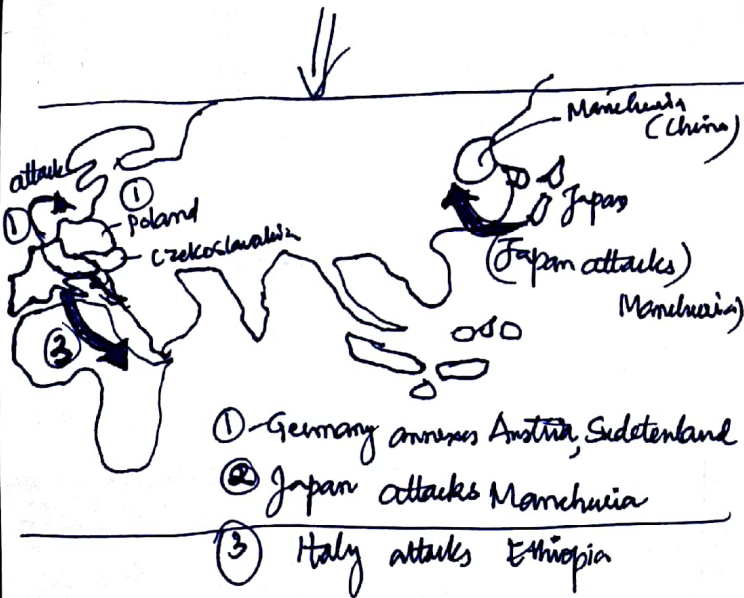 Manchuria
(China)
attack
①
①
Poland
Czekoslavakia
Japan
(Japan attacks)
Manchuria)
③
① Germany annexes Austria, Sudetenland
② Japan attacks Manchuria
③ Italy attacks Ethiopia